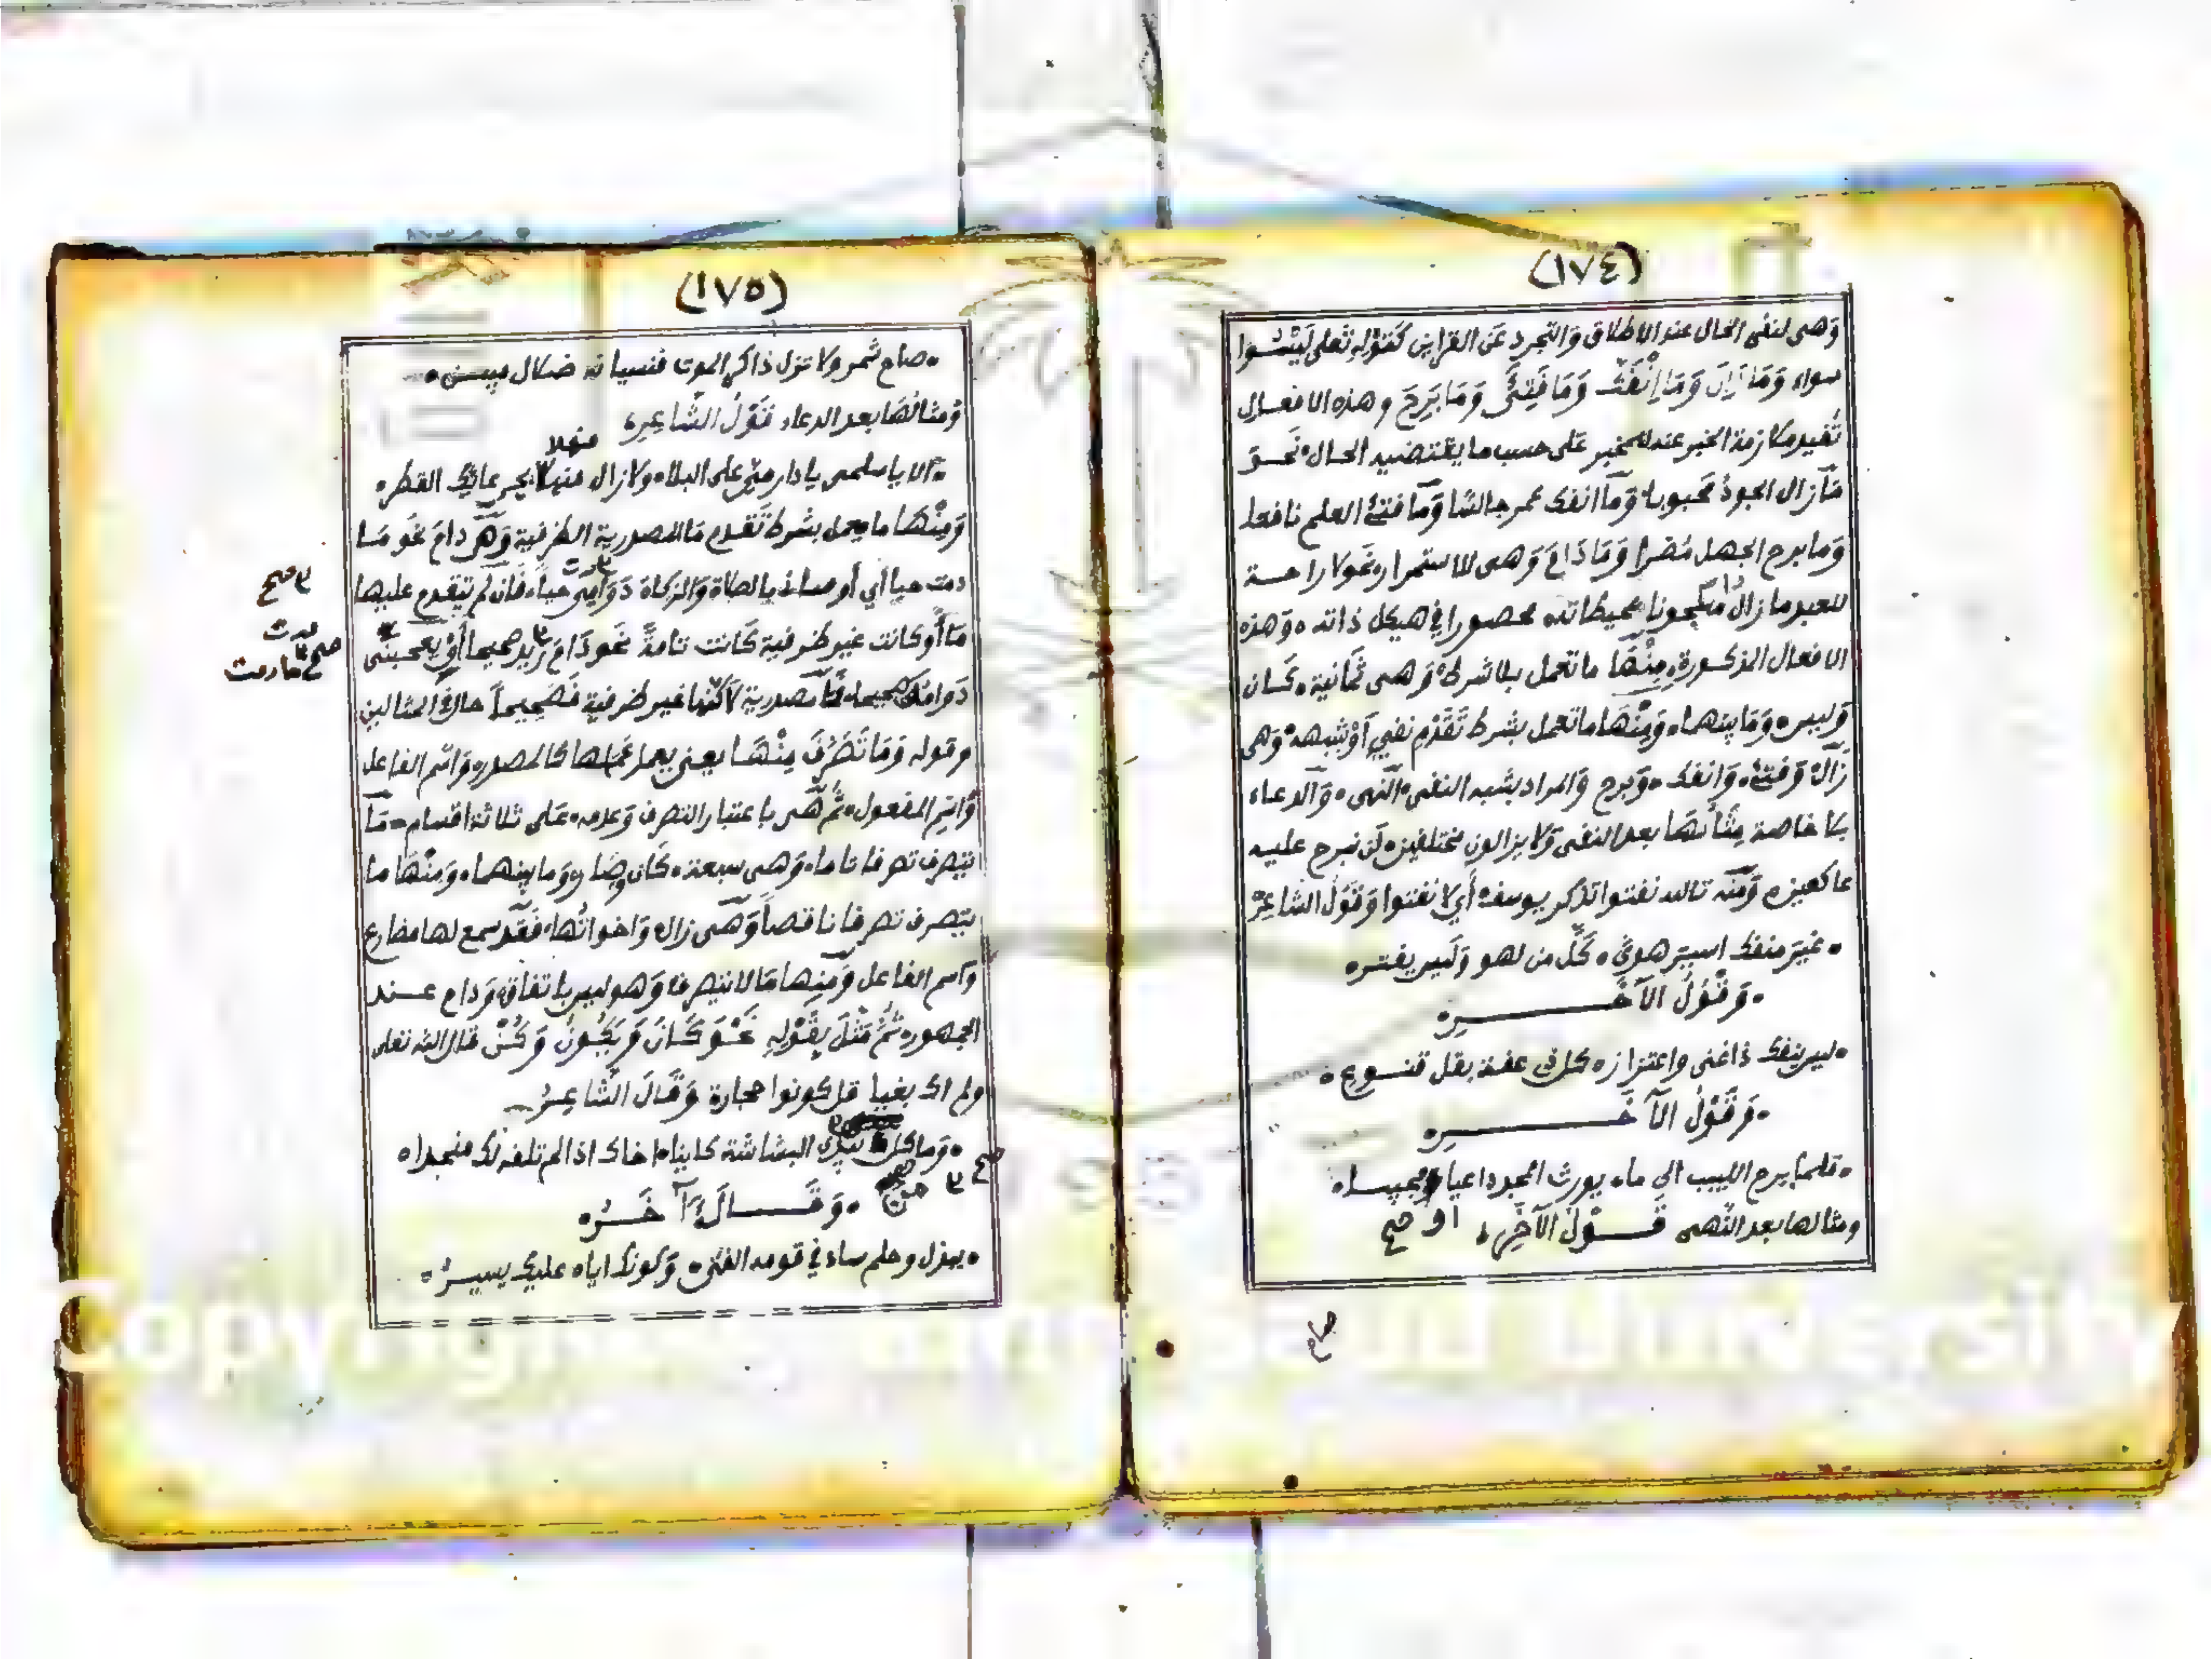 (١٧٤)
وَهى لنفى الحال عند الاطلاق وَالتجرد عَن القراين كَقَوْلِهِ تَعَلى لَيْسُوا
سواء وَمَا زَالَ وَمَا اِنْفَكَّ وَمَا فَتِئَ وَمَا بَرِحَ وهذه الافعال
تُفيد ملازمة الخبر عنه للمخبر عَلى حسب ما يقتضيه الحال نَحوَ
مَا زال الجودُ مَحبوبا وَمَا انفك عمر جالسًا وَمَا فتئَ العلم نافعا
وَما برح الجهل مُضرا وَمَا دَامَ وَهى للاستمرار نحو لا راحة
للعبد ما زال مسجونا بمحيطاته محصورا في هيكل ذاته وَهذه
الافعال المذكورة مِنْهَا ما تعمل بلا شرط وَهى ثمَانية كَان
وَليس وَمَا بينهما وَمِنْهَا ما تعمل بشرط تَقَدُّم نفيٍ اَوْ شبهه وَهى
زَالَ وَفتئَ وَانفك وَبرح وَالمراد بشبه النفى النَّهى وَالدعاء
بلا خاصة مِثَالُهَا بعد النفى وَلا يزالون مختلفين لَن نبرح عليه
عاكفين وَمنه تالله تفتوا تذكر يوسف أي لا تفتوا وَقَوْلُ الشاعِرْ
غيرَ منفك اسيرَ هوىً كُلّ من لهو وَليس يعتبر
وَقَوْلُ الآخَرِ
ليس ينفك ذا غنى واعتزاز كل ذى عفة بقل قنوع
وَقَوْلُ الآخَرِ
قلما يبرح اللبيب الى ما يورث المجد داعيا او مجيبا
ومثالها بعد النَّهى قَوْلُ الآخَرِ
او صح
صاح
(١٧٥)
صاح شمر ولا تزل ذاكر الموت فنسيانه ضلال مبين
وَمثالُهَا بعد الدعاء قَوْلُ الشَّاعِرِ
منهلا
الا يا سلمى يا دار مىّ على البلا ولا زال منهلا بجرعائك القطر
وَمِنْهَا ما يعمل بشرط تَقدم مَا المصدرية الظرفية وَهى دامَ نحوَ مَا
دمت حيا أي أوصانى بالصلاة وَالزكاة دَوَامِى حياً فَان لم يتقدم عليها
٣ صح
مَا أو كانت غير ظرفية كَانت تامةً نحو دَامَ زيد صحيحا أَوْ يعجبنى
صح ما دمت
دَوامك صحيحا فَمَا مصدرية لَاكنّها غير ظرفية فَصَحِيحاً حال في المثالين
وقوله وَمَا تَصَرَّفَ مِنْهَا يعنى يعمل عَمَلها كالمصدر وَاسْم الفاعل
وَاسْمِ المفعول ثُمَّ هى باعتبار التصرف وَعدمه عَلى ثلاثة اقسام مَا
يتصرف تصرفا تاما وَهى سبعة كَان وصَار وَما بينهما وَمِنْهَا ما
يتصرف تصرفا ناقصاً وَهى زال وَاخواتُهَا فَقد سمع لها مضارع
وَاسم الفاعل وَمِنها مَا لا يتصرف وَهو ليس باتفاق وَدام عند
الجمهور ثُمَّ مَثَّلَ بِقَوْلِهِ نَحْوَ كَانَ وَيَكُونُ وَكُنْ قال الله تعلى
ولم اك بغيا قل كونوا حجارة وَقَالَ الشَّاعِرُ
وَما كل من يبدى البشاشة كاينا اخاك اذا لم تلفه لك منجدا
صح ٣ من
وَقَالَ آخَرُ
ببذل وحلم ساد في قومه الفتى وَكونك اياه عليك يسيرُ